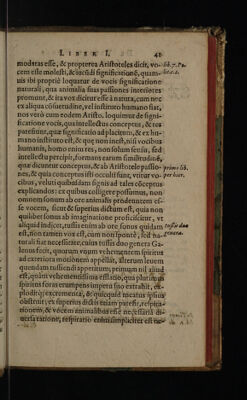 LIBER I. 41
modatas esse, & propterea Aristoteles dicit, vo-
cem esse molesti, & iucūdi significationē, quam-
uis ibi propriè loquatur de vocis significatione
naturali, qua animalia suas passiones interiores
promunt, & ita vox dicitur esse à natura, cum nec
ex aliqua cōsuetudine, vel instituto humano fiat,
nos verò cum eodem Aristo. loquimur de signi-
ficatione vocis, qua intellectus conceptus, & res
patefiunt, quæ significatio ad placitum, & ex hu-
mano instituto est, & quę non inest, nisi vocibus
humanis, homo enim res, non solum sensu, sed
intellectu percipit, formans earum similitudinē,
quæ dicuntur conceptus, & ab Aristotele passio-
nes, & quia conceptus isti occulti sunt, vtitur vo-
cibus, veluti quibusdam signis ad tales cōceptus
explicandos: ex quibus colligere possumus, non
omnem sonum ab ore animalis prodeuntem es-
se vocem, sicut & superius dictum est, quia non
quilibet sonus ab imaginatione proficiscitur, vt
aliquid indicet, tussis enim ab ore sonus quidam
est, non tamen vox est, cum non spontè, sed na-
turali fiat necessitate, cuius tussis duo genera Ga-
lenus fecit, quorum vnum vehementem spiritus
ad exteriora motionem appellat, alterum leuem
quendam tussiendi appetitum, primum nil aliud
est, quàm vehementissima efflatio, qua plurimus
spiritus foras erumpens impetu suo extrahit, ex-
ploditq; excrementa, & quicquid meatus ipsius
obstruit, ex superius dictis etiam patet, respira-
tionem, & vocem animalibus esse necessaria di-
uersa ratione, respiratio enim simpliciter est ne-
lib. 7. Po-
lit. c. 2.
primo lib.
per hier.
tussis duo
genera.